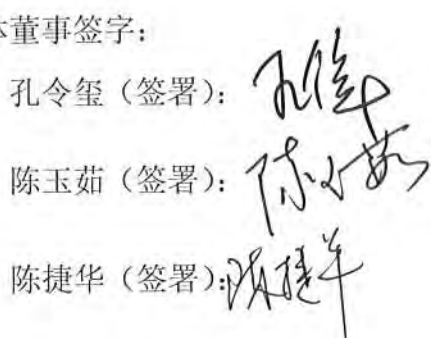 体董事签字：
孔令玺（签署）：
陈玉茹（签署）：陈玉茹
陈捷华（签署）：陈捷华